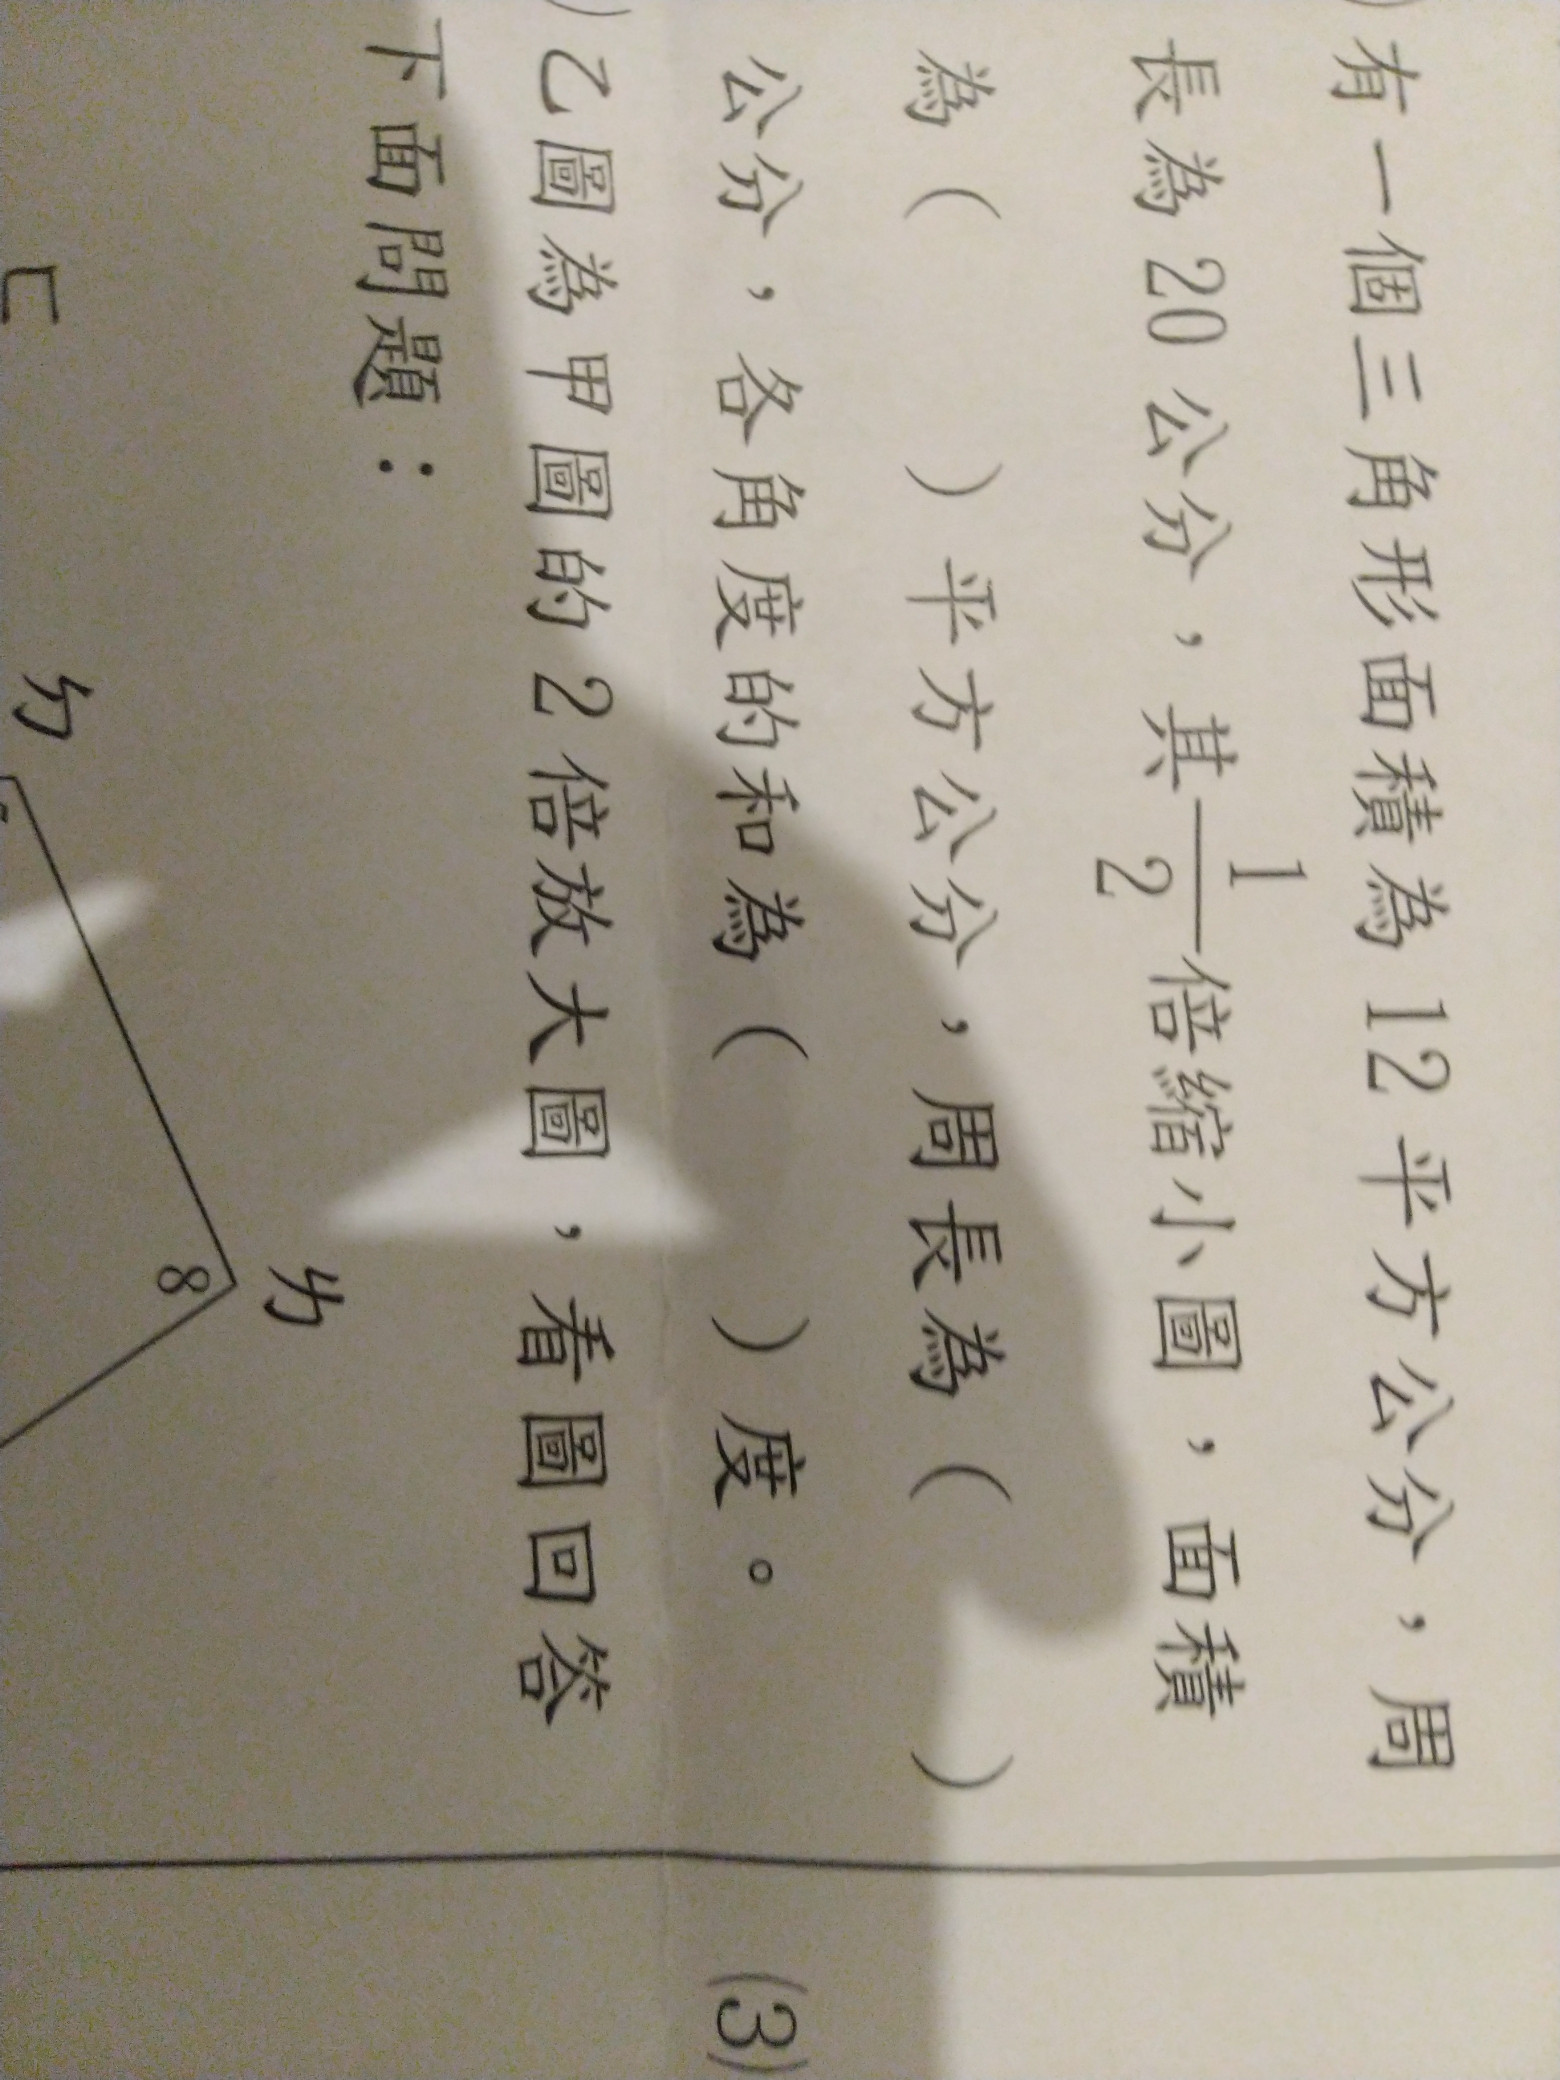 )有一個三角形面積為12平方公分，周
長為20公分，其1/2倍縮小圖，面積
為(　　)平方公分，周長為(　　)
公分，各角度的和為(　　)度。
)乙圖為甲圖的2倍放大圖，看圖回答
下面問題：
ㄈ
ㄉ
ㄌ
8
(3)